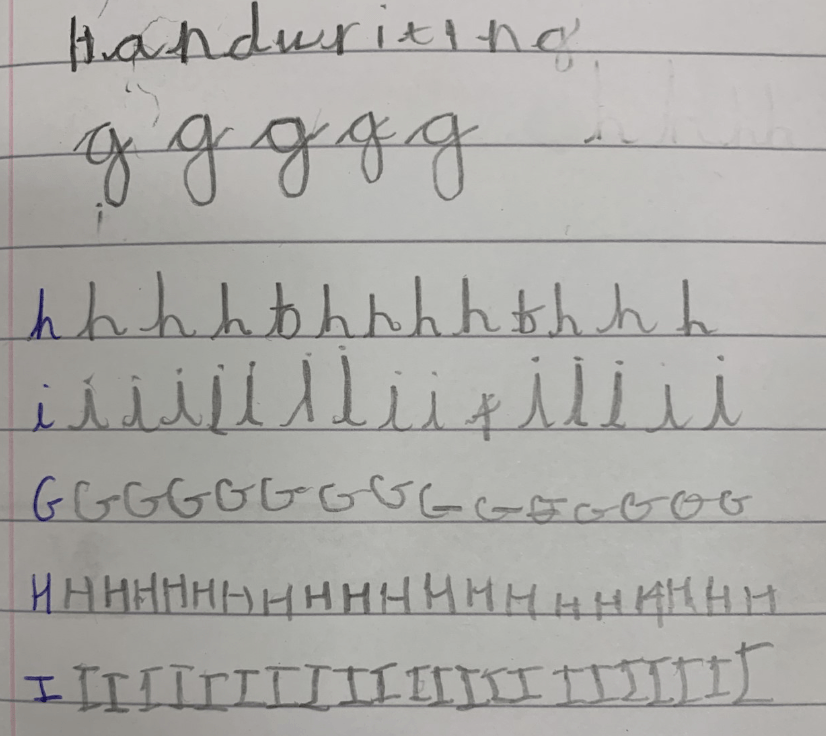 Handwriting
g g g g g
h h h h h h h h h h h h h
i i i i i i i i i i i i i i i i
G G G G G G G G G G G G G G G
H H H H H H H H H H H H H H H H H H H
I I I I I I I I I I I I I I I I I I I I